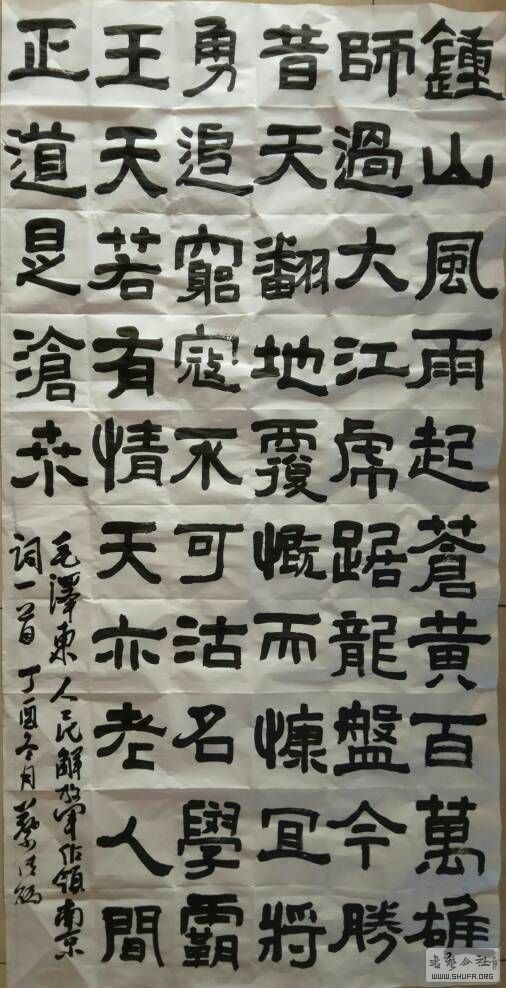 鍾山風雨起蒼黄百萬雄
師過大江虎踞龍盤今勝
昔天翻地覆慨而慷宜將
勇追窮寇不可沽名學霸
王天若有情天亦老人間
正道是滄桒
毛澤東人民解放軍佔領南京
詞一首 丁酉冬月
書藝公社
WWW.SHUFA.ORG